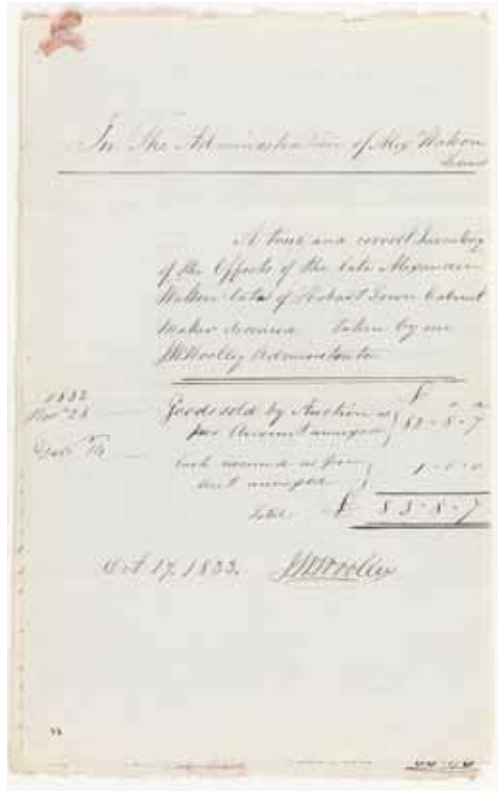 In the Administration of Alexr Walton
A true and correct Inventory
of the Effects of the late Alexander
Walton late of Hobart Town Cabinet
Maker deceased taken by me
JWWoolley Administrator
£
1832
Novr 28 Goods sold by Auction as
per Account annexed } 82-8-7
Cash received as per
acct annexed } 1-0-0
Total £ 83-8-7
Oct 17, 1833. JWWoolley